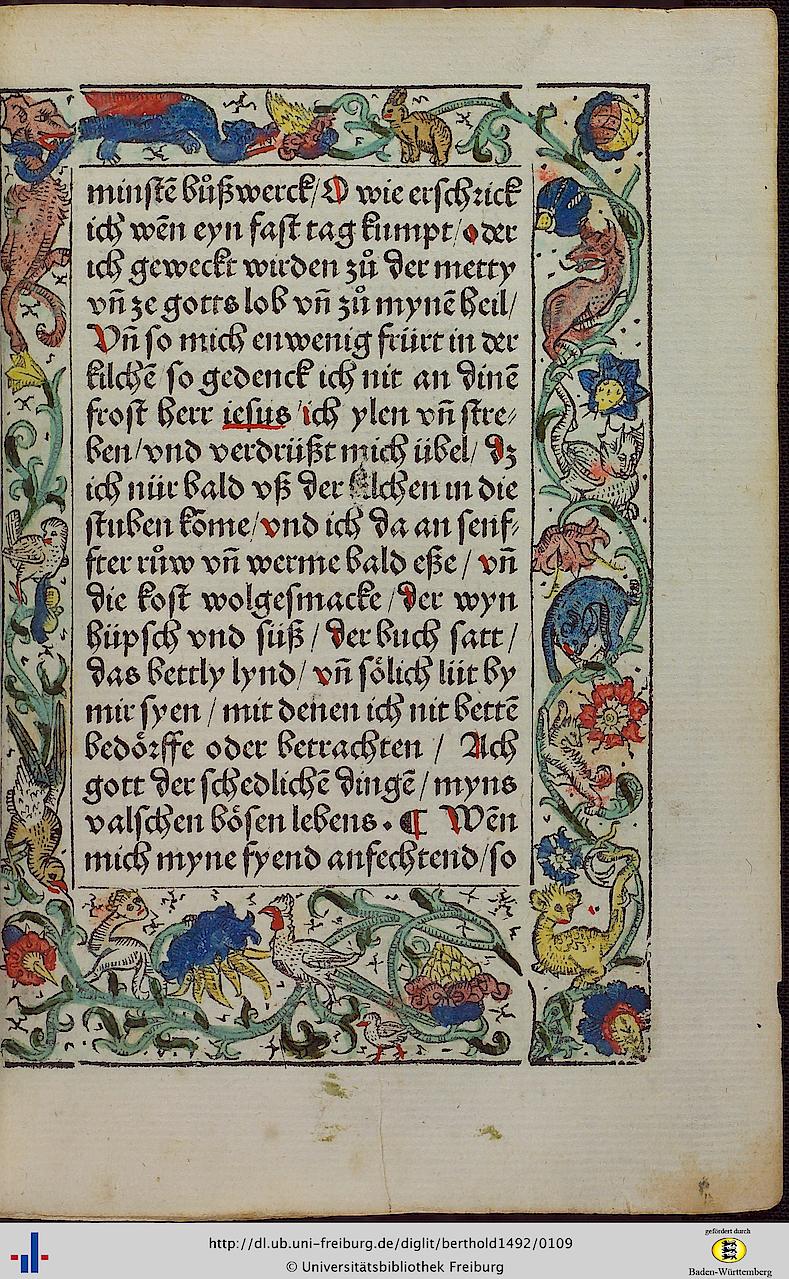 minstē bůßwerck/ O wie erschrick
ich wēn eyn fast tag kumpt/ oder
ich geweckt wirden zů der metty
vn̄ ze gotts lob vn̄ zů mynē heil/
Vn̄ so mich enwenig frürt in der
kilchē so gedenck ich nit an dinē
frost herr iesus ich ylen vn̄ stre⸗
ben/ vnd verdrüßt mich übel/ dz
ich nür bald vß der kilchen in die
stuben kōme/ vnd ich da an senf⸗
fter růw vn̄ werme bald eße/ vn̄
die kost wolgesmacke/ der wyn
hüpsch vnd süß/ der buch satt/
das bettly lynd/ vn̄ sölich lüt by
mir syen/ mit denen ich nit bettē
bedörffe oder betrachten/ Ach
gott der schedlichē dingē/ myns
valschen bösen lebens. ¶ Wēn
mich myne fyend anfechtend/ so
http://dl.ub.uni-freiburg.de/diglit/berthold1492/0109
© Universitätsbibliothek Freiburg
gefördert durch
Baden-Württemberg